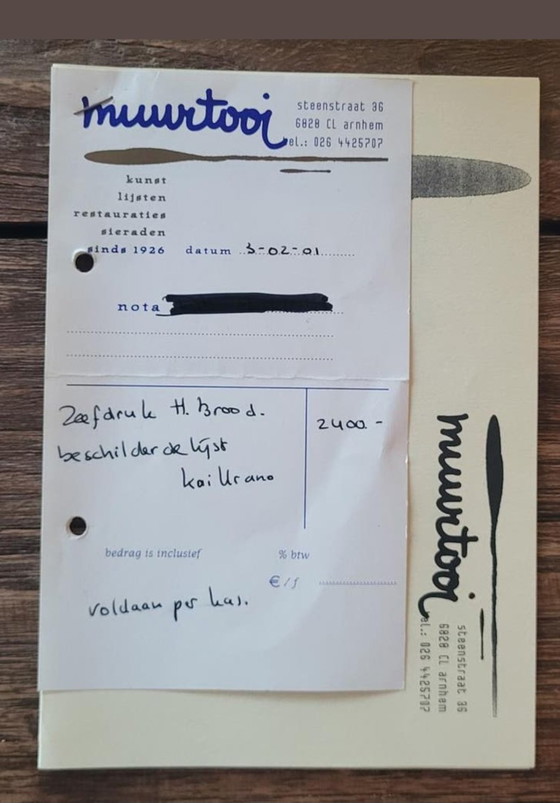 muurtooi
steenstraat 36
6828 CL arnhem
tel.: 026 4425707
kunst
lijsten
restauraties
sieraden
sinds 1926 datum 3-02-01
nota
Zeefdruk H. Brood.
2400 -
beschilderde lijst
bedrag is inclusief % btw
€
voldaan per kas.
muurtooi
steenstraat 36
6828 CL arnhem
tel.: 026 4425707